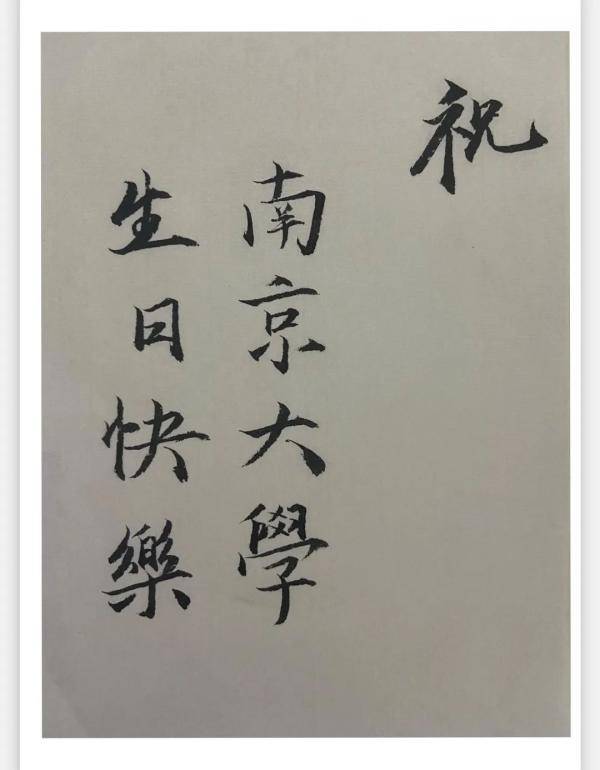 祝
南京大學
生日快樂